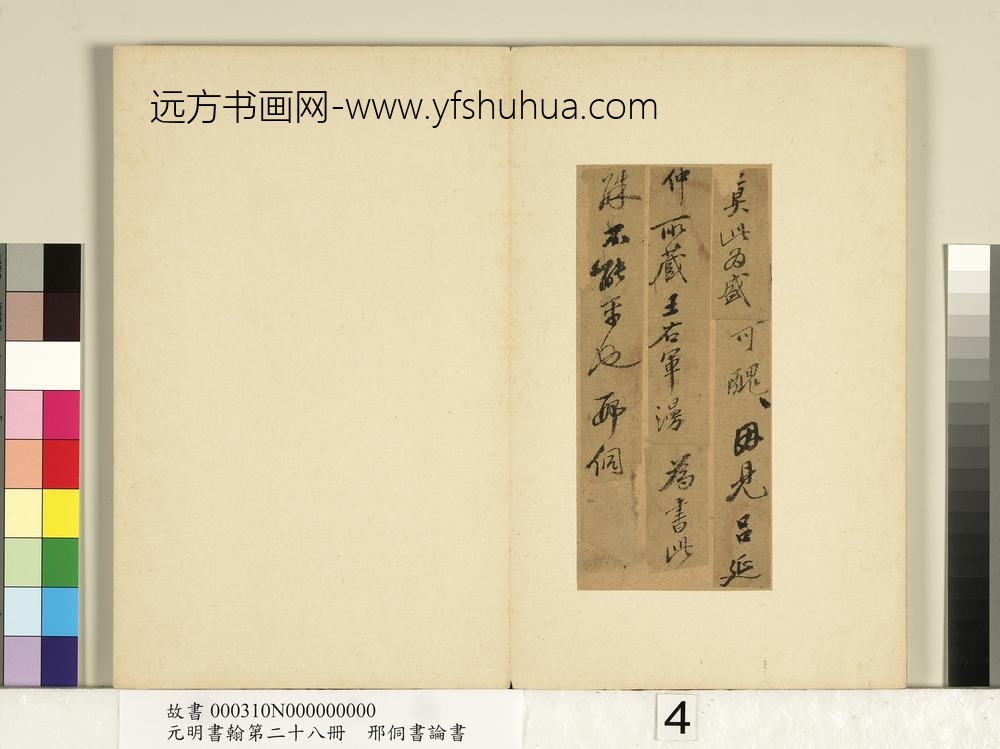 远方书画网-www.yfshuhua.com
莫此為盛可醜〻因見呂延
仲所藏王右軍漫為書此
殊不能平也邢侗
故書 000310N000000000
元明書翰第二十八冊 邢侗書論書
4